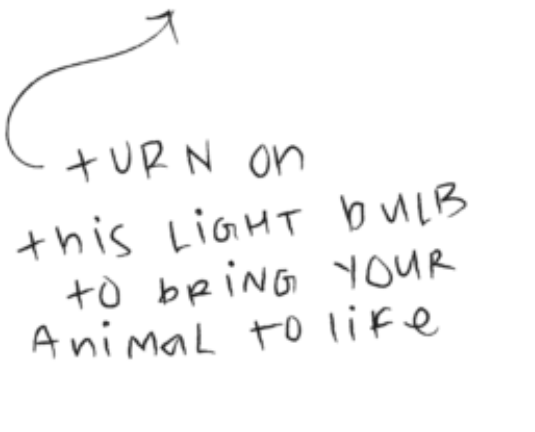 tURN on
this LiGHT bULB
to bRiNG YOUR
AniMaL to liFe